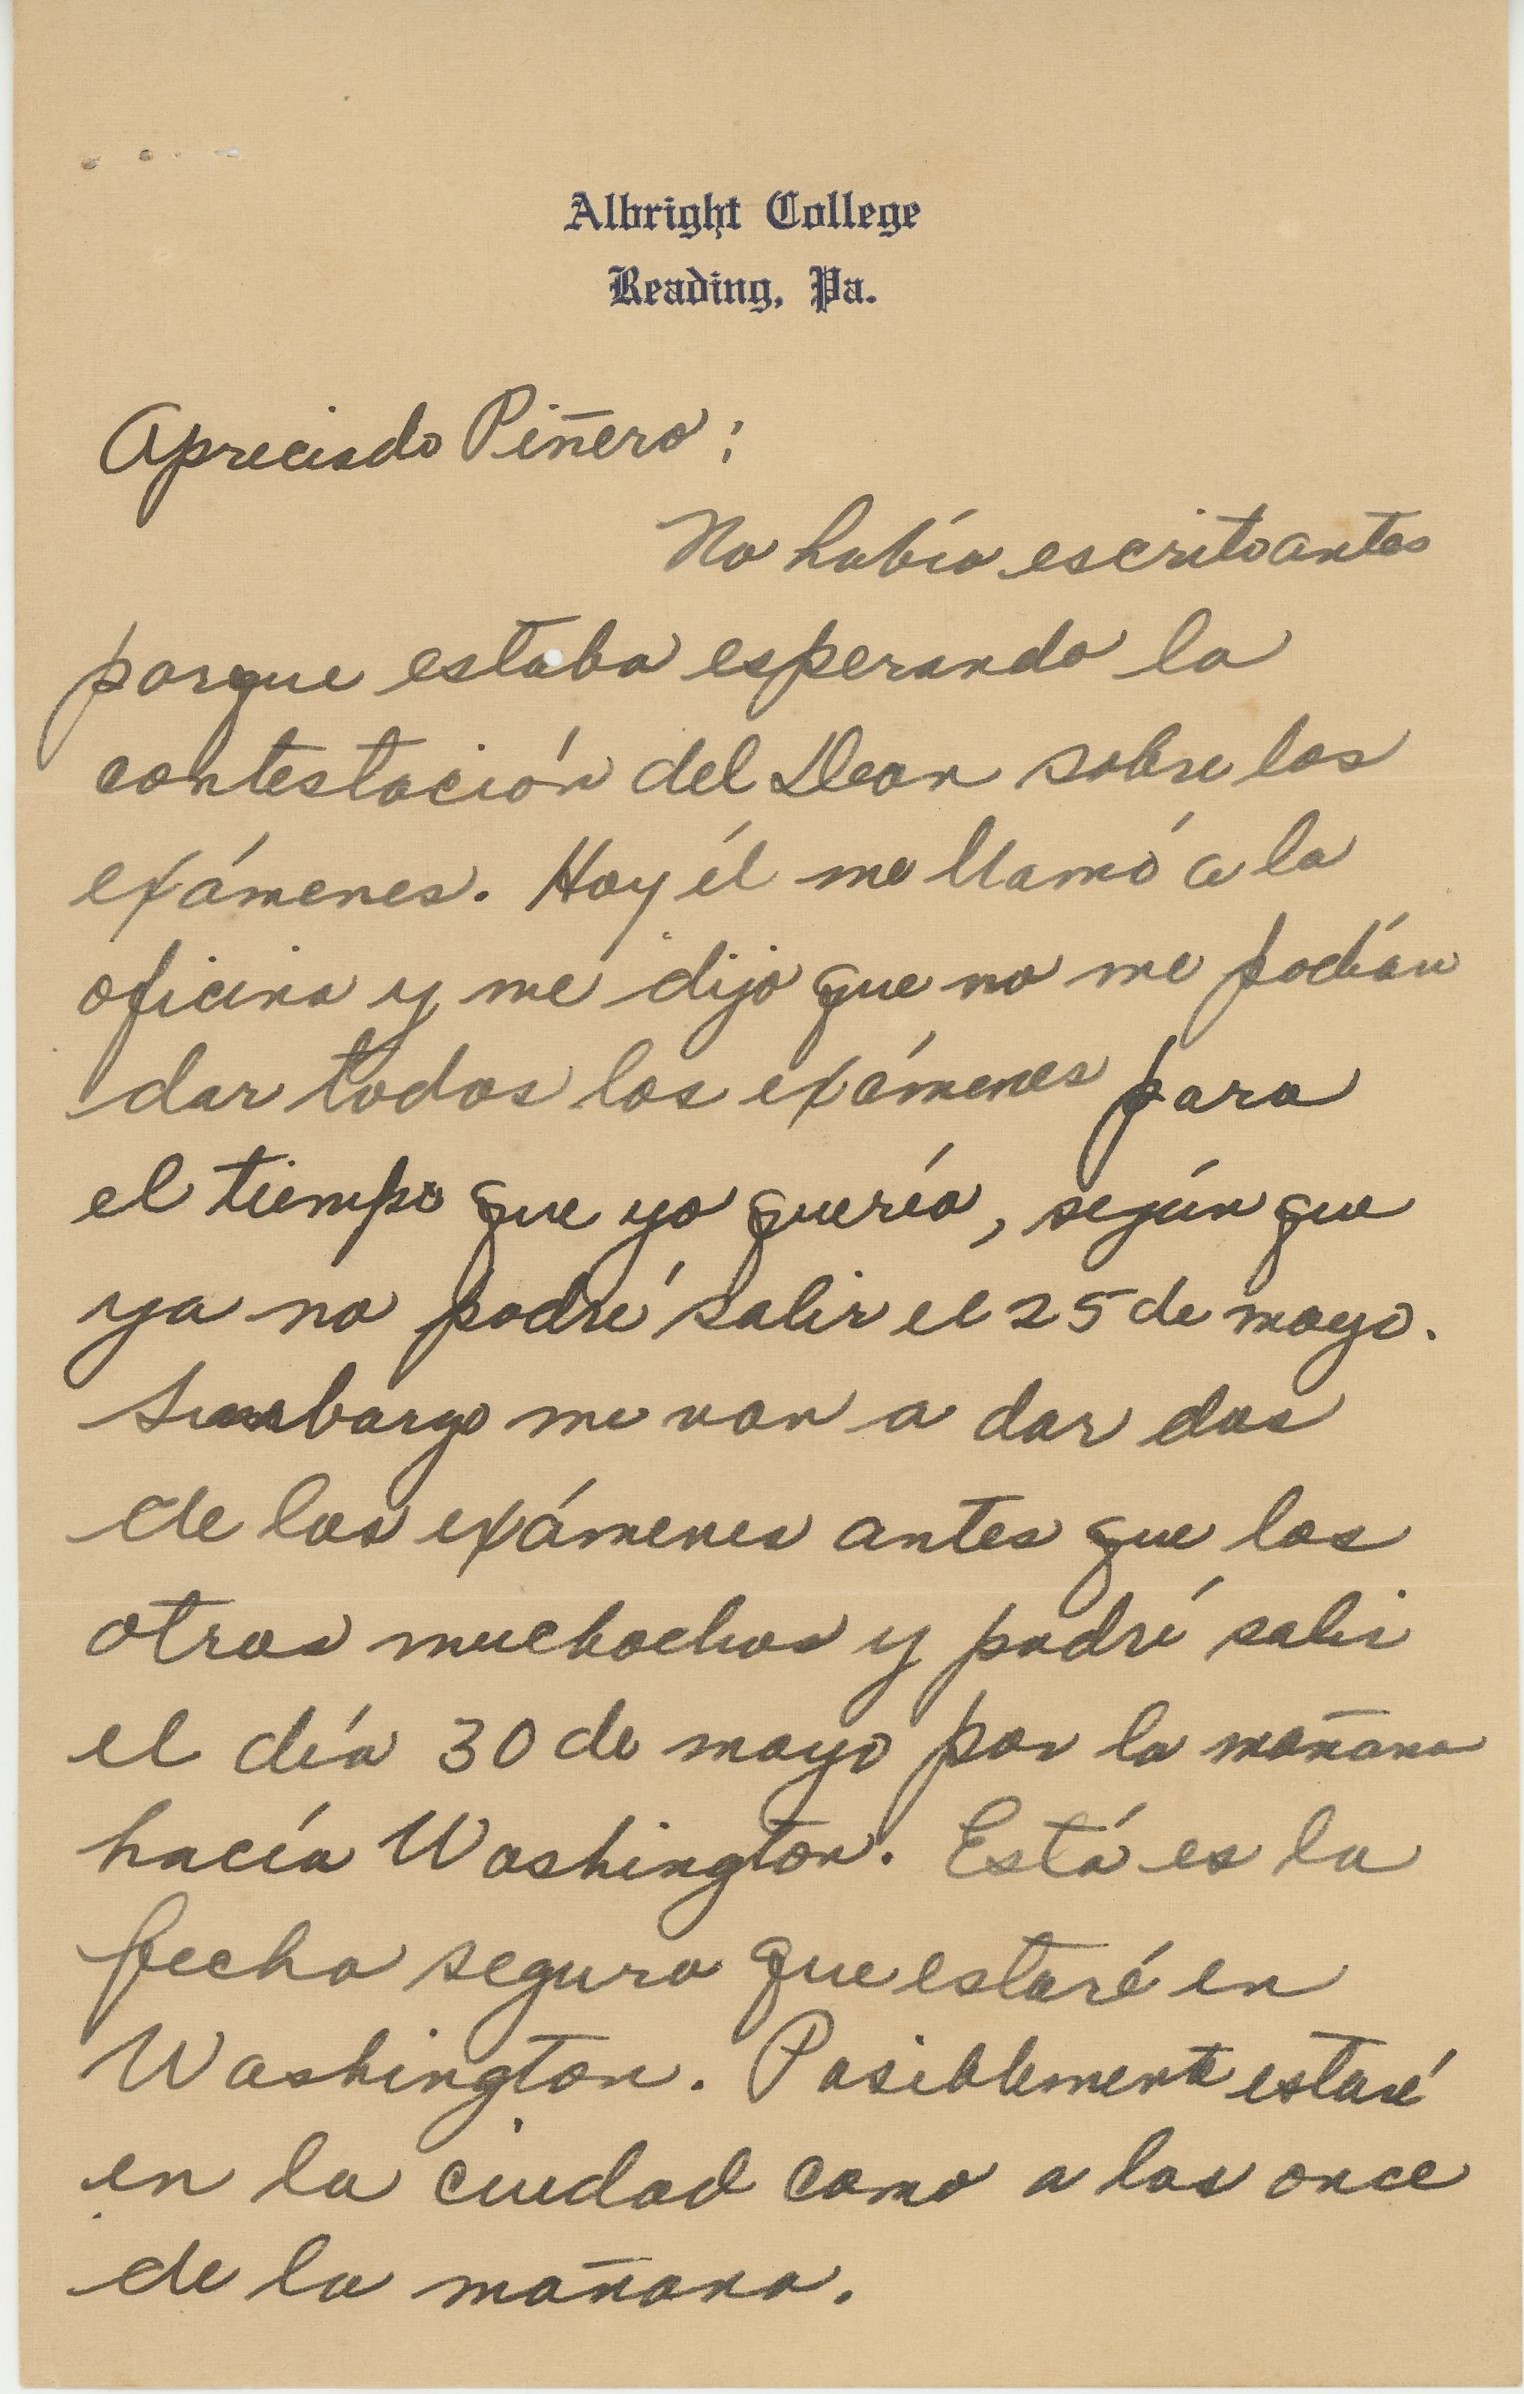 Albright College
Reading, Pa.
Apreciado Piñero:
No había escrito antes
porque estaba esperando la
contestación del Dean sobre los
exámenes. Hoy él me llamó a la
oficina y me dijo que no me podían
dar todos los exámenes para
el tiempo que yo quería, según que
ya no podré salir el 25 de mayo.
Sinembargo me van a dar dos
de los exámenes antes que los
otros muchachos y podré salir
el día 30 de mayo por la mañana
hacía Washington. Está es la
fecha segura que estaré en
Washington. Posiblemente estaré
en la ciudad como a las once
de la mañana.